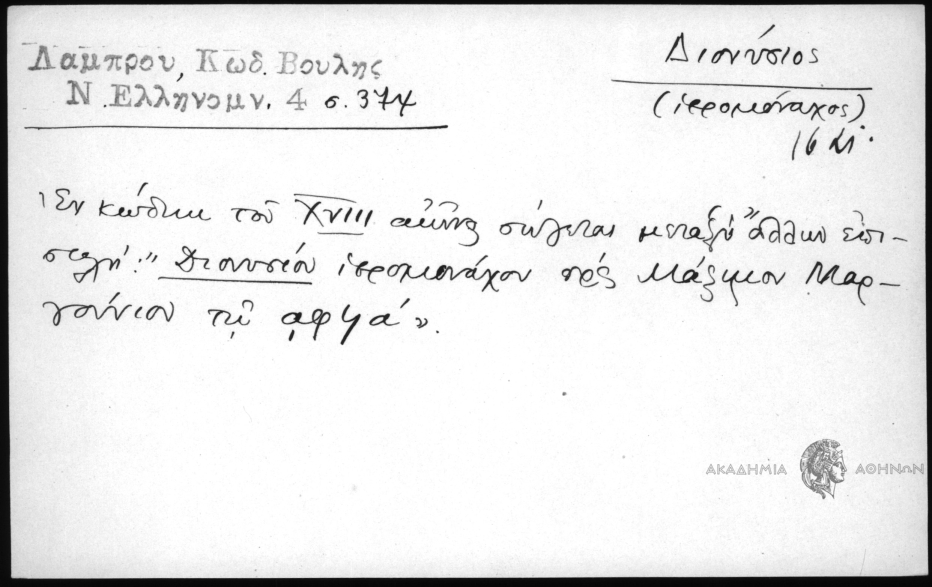 Λαμπρου, Κωδ. Βουλης
Ν. Ελληνομν. 4 σ. 374
Διονύσιος
(ἱερομόναχος)
16 αἰ.
Ἐν κώδικι τοῦ XVIII αἰῶνος σώζεται μεταξὺ ἄλλων ἐπι-
στολή: "Διονυσίου ἱερομονάχου πρὸς Μάξιμον Μαρ-
γούνιον τῷ ͵αφϟά».
ΑΚΑΔΗΜΙΑ ΑΘΗΝΩΝ